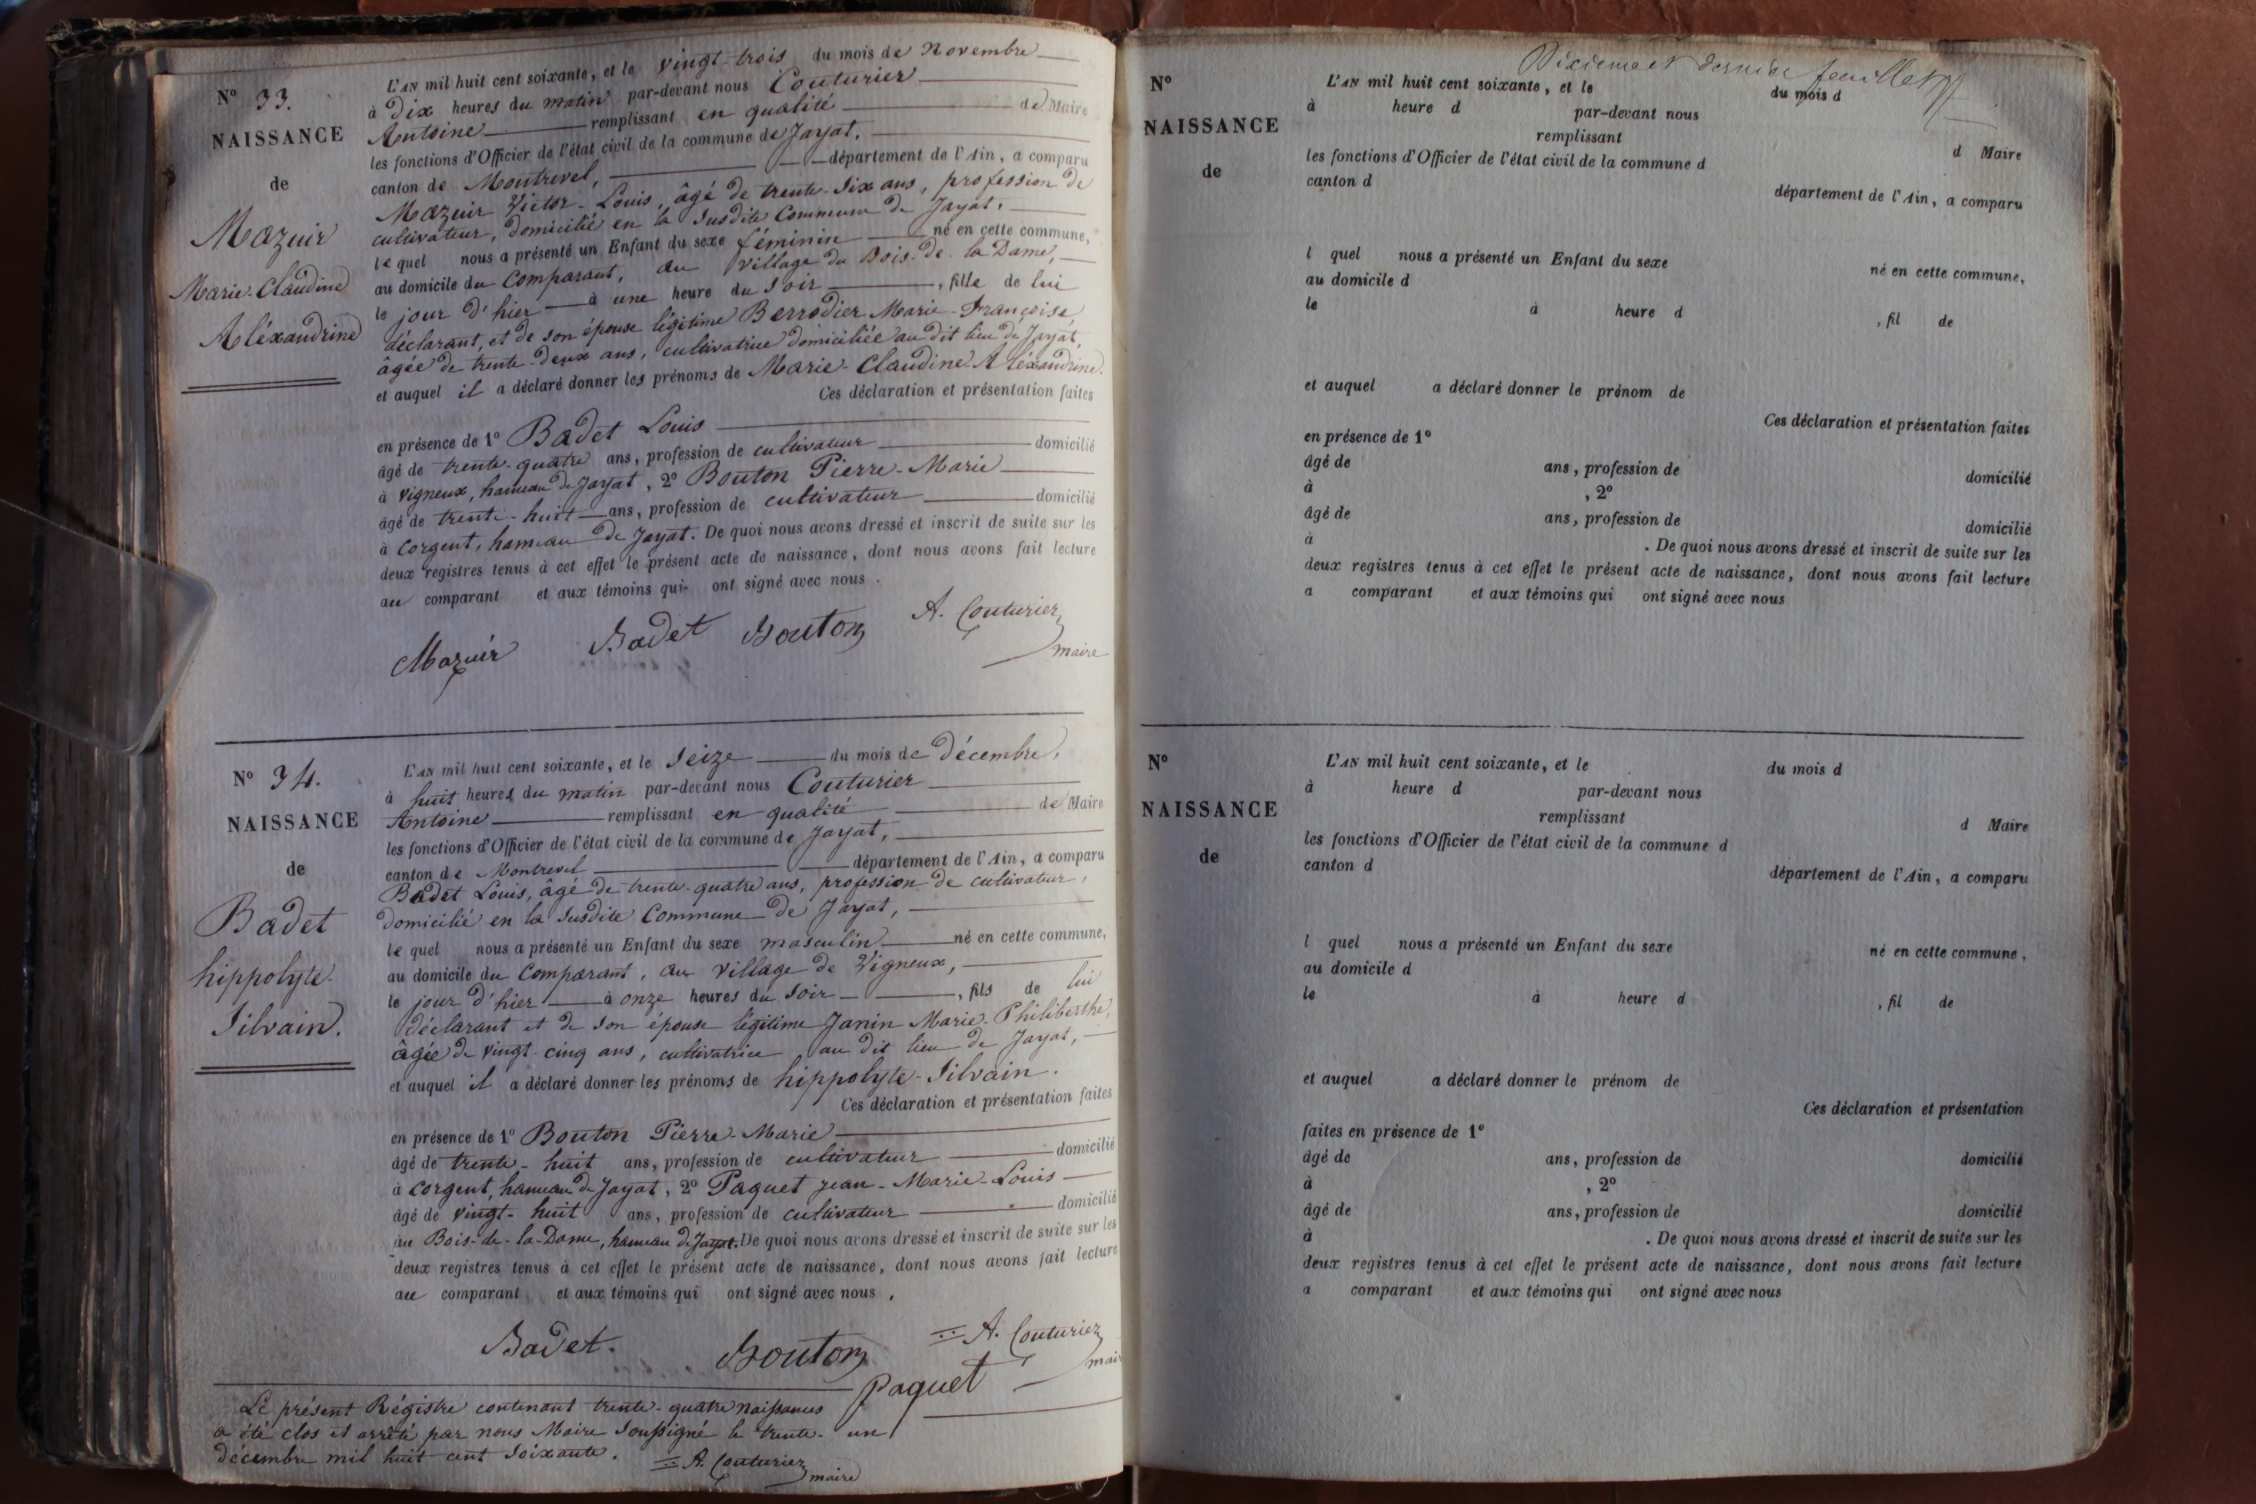 N° 33.
NAISSANCE
de
Mazuir
Marie-Claudine
Aléxandrine
L'AN mil huit cent soixante, et le vingt-trois du mois de Novembre
à dix heures du matin par-devant nous Couturier
Antoine remplissant en qualité de Maire
les fonctions d'Officier de l'état civil de la commune de Jayat,
canton de Montrevel, département de l'Ain, a comparu
Mazuir Victor-Louis, âgé de trente-six ans, profession de
cultivateur, domicilié en la susdite Commune de Jayat,
lequel nous a présenté un Enfant du sexe féminin né en cette commune,
au domicile du Comparant, au village du Bois-de-la Dame,
le jour d'hier à une heure du soir, fille de lui
déclarant, et de son épouse légitime Berrodier Marie-Françoise,
âgée de trente-deux ans, cultivatrice domiciliée au dit lieu de Jayat,
et auquel il a déclaré donner les prénoms de Marie-Claudine Aléxandrine.
Ces déclaration et présentation faites
en présence de 1° Badet Louis
âgé de trente-quatre ans, profession de cultivateur domicilié
à Vigneux, hameau de Jayat, 2° Bouton Pierre-Marie
âgé de trente-huit ans, profession de cultivateur domicilié
à Corgent, hameau de Jayat. De quoi nous avons dressé et inscrit de suite sur les
deux registres tenus à cet effet le présent acte de naissance, dont nous avons fait lecture
au comparant et aux témoins qui ont signé avec nous.
Mazuir Badet Bouton A. Couturier
maire
N° 34.
NAISSANCE
de
Badet
hippolyte-
Silvain.
L'AN mil huit cent soixante, et le seize du mois de décembre,
à huit heures du matin par-devant nous Couturier
Antoine remplissant en qualité de Maire
les fonctions d'Officier de l'état civil de la commune de Jayat,
canton de Montrevel département de l'Ain, a comparu
Badet Louis, âgé de trente-quatre ans, profession de cultivateur,
domicilié en la susdite Commune de Jayat,
lequel nous a présenté un Enfant du sexe masculin né en cette commune,
au domicile du Comparant, au village de Vigneux,
le jour d'hier à onze heures du soir, fils de lui
déclarant et de son épouse légitime Janin Marie-Philiberthe,
âgée de vingt-cinq ans, cultivatrice au dit lieu de Jayat,
et auquel il a déclaré donner les prénoms de hippolyte-Silvain.
Ces déclaration et présentation faites
en présence de 1° Bouton Pierre-Marie
âgé de trente-huit ans, profession de cultivateur domicilié
à Corgent, hameau de Jayat, 2° Paquet jean-Marie-Louis
âgé de vingt-huit ans, profession de cultivateur domicilié
au Bois-de-la-Dame, hameau de Jayat. De quoi nous avons dressé et inscrit de suite sur les
deux registres tenus à cet effet le présent acte de naissance, dont nous avons fait lecture
au comparant et aux témoins qui ont signé avec nous,
Badet. Bouton A. Couturier
maire
Paquet
Le présent Régistre contenant trente-quatre naissances
a été clos et arrêté par nous Maire soussigné le trente-un
décembre mil huit cent soixante. A. Couturier
maire
Dixieme et dernier feuillet
N°
NAISSANCE
de
L'AN mil huit cent soixante, et le du mois d
à heure d par-devant nous
remplissant d Maire
les fonctions d'Officier de l'état civil de la commune d
canton d département de l'Ain, a comparu
l quel nous a présenté un Enfant du sexe né en cette commune,
au domicile d
le à heure d , fil de
et auquel a déclaré donner le prénom de
Ces déclaration et présentation faites
en présence de 1°
âgé de ans, profession de domicilié
à , 2°
âgé de ans, profession de domicilié
à . De quoi nous avons dressé et inscrit de suite sur les
deux registres tenus à cet effet le présent acte de naissance, dont nous avons fait lecture
a comparant et aux témoins qui ont signé avec nous
N°
NAISSANCE
de
L'AN mil huit cent soixante, et le du mois d
à heure d par-devant nous
remplissant d Maire
les fonctions d'Officier de l'état civil de la commune d
canton d département de l'Ain, a comparu
l quel nous a présenté un Enfant du sexe né en cette commune,
au domicile d
le à heure d , fil de
et auquel a déclaré donner le prénom de
Ces déclaration et présentation
faites en présence de 1°
âgé de ans, profession de domicilié
à , 2°
âgé de ans, profession de domicilié
à . De quoi nous avons dressé et inscrit de suite sur les
deux registres tenus à cet effet le présent acte de naissance, dont nous avons fait lecture
a comparant et aux témoins qui ont signé avec nous